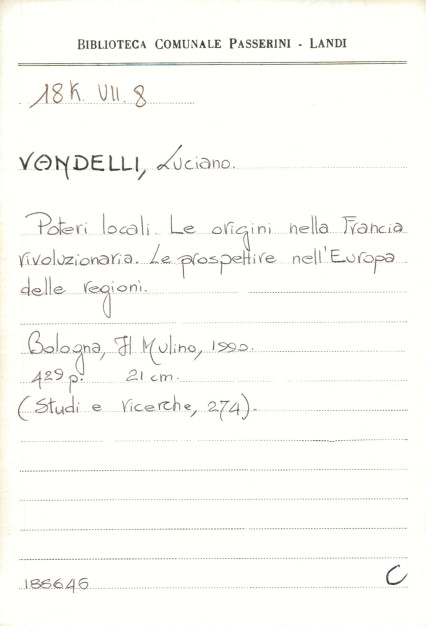 BIBLIOTECA COMUNALE PASSERINI - LANDI
18 K. VII. 8
VANDELLI, Luciano.
Poteri locali. Le origini nella Francia
rivoluzionaria. Le prospettive nell'Europa
delle regioni.
Bologna, Il Mulino, 1990.
429 p. 21 cm.
(Studi e ricerche, 274).
186646 C